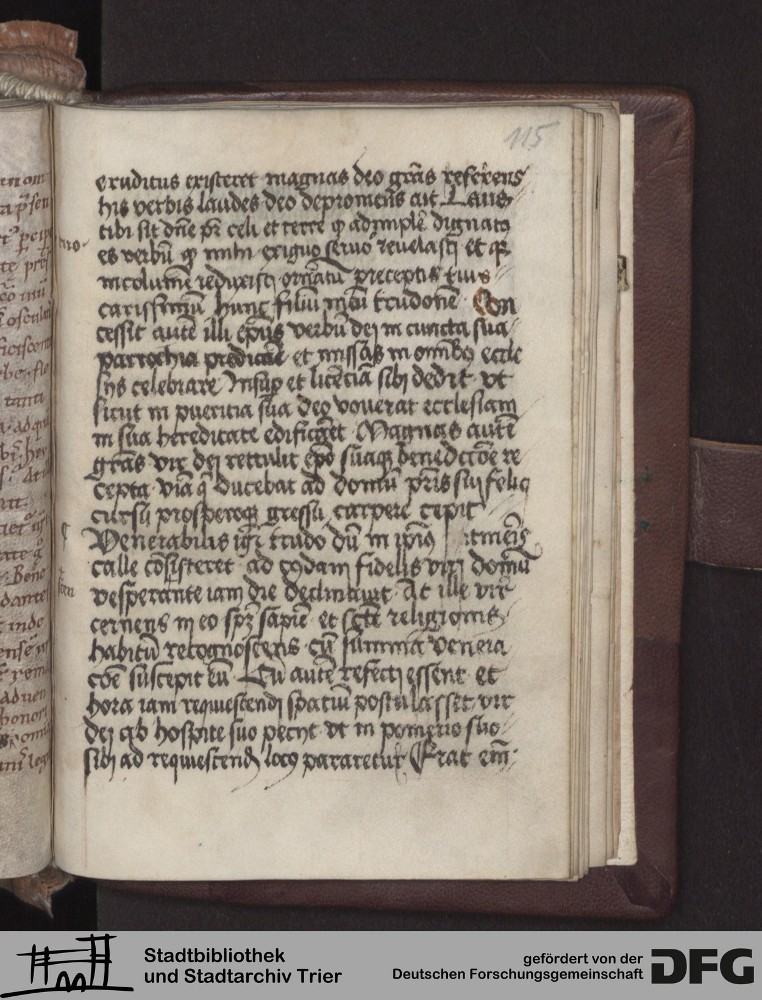 115
eruditus existeret magnas deo grãs referens
his verbis laudes deo depromens ait Laus
tibi sit dñe pr̃ celi et terre q adimplẽ dignatꝯ
es verbũ q mihi exiguo servo revelasti et
incolumẽ reduxisti ornatũ preceptis tuis
carissimũ hunc filiũ meũ trudonẽ Con
cessit autẽ illi ep̃us verbũ dei in cuncta sua
parrochia predicare et missas in omibꝯ eccle
sijs celebrare Insup et licẽciã sibi dedit ut
sicut in puericia sua deo voverat ecclesiam
in sua hereditate edificaret Magnas autẽ
grãs vir dei rettulit ep̃o suaqꝫ benedccõe re
cepta viã q̃ ducebat ad domũ pr̃is sui felici
cursu prosperoqꝫ gressu carpere cepit
Venerabilis igr̃ trudo dũ in ipius itineris
calle cõsisteret ad qodam fidelis viri domũ
vesperante iam die declinavit At ille vir
cernens in eo spm̃ sapiẽ et sctẽ religionis
habitũ recognoscens cũ summa venera
cõe suscepit eũ Cũ autẽ refecti essent et
hora iam requiescendi spatiũ postulasset vir
dei ab hospite suo peciit ut in pomerio suo
sibi ad requiescendũ locꝯ pararetur Erat eñ
Stadtbibliothek
und Stadtarchiv Trier
gefördert von der
Deutschen Forschungsgemeinschaft
DFG